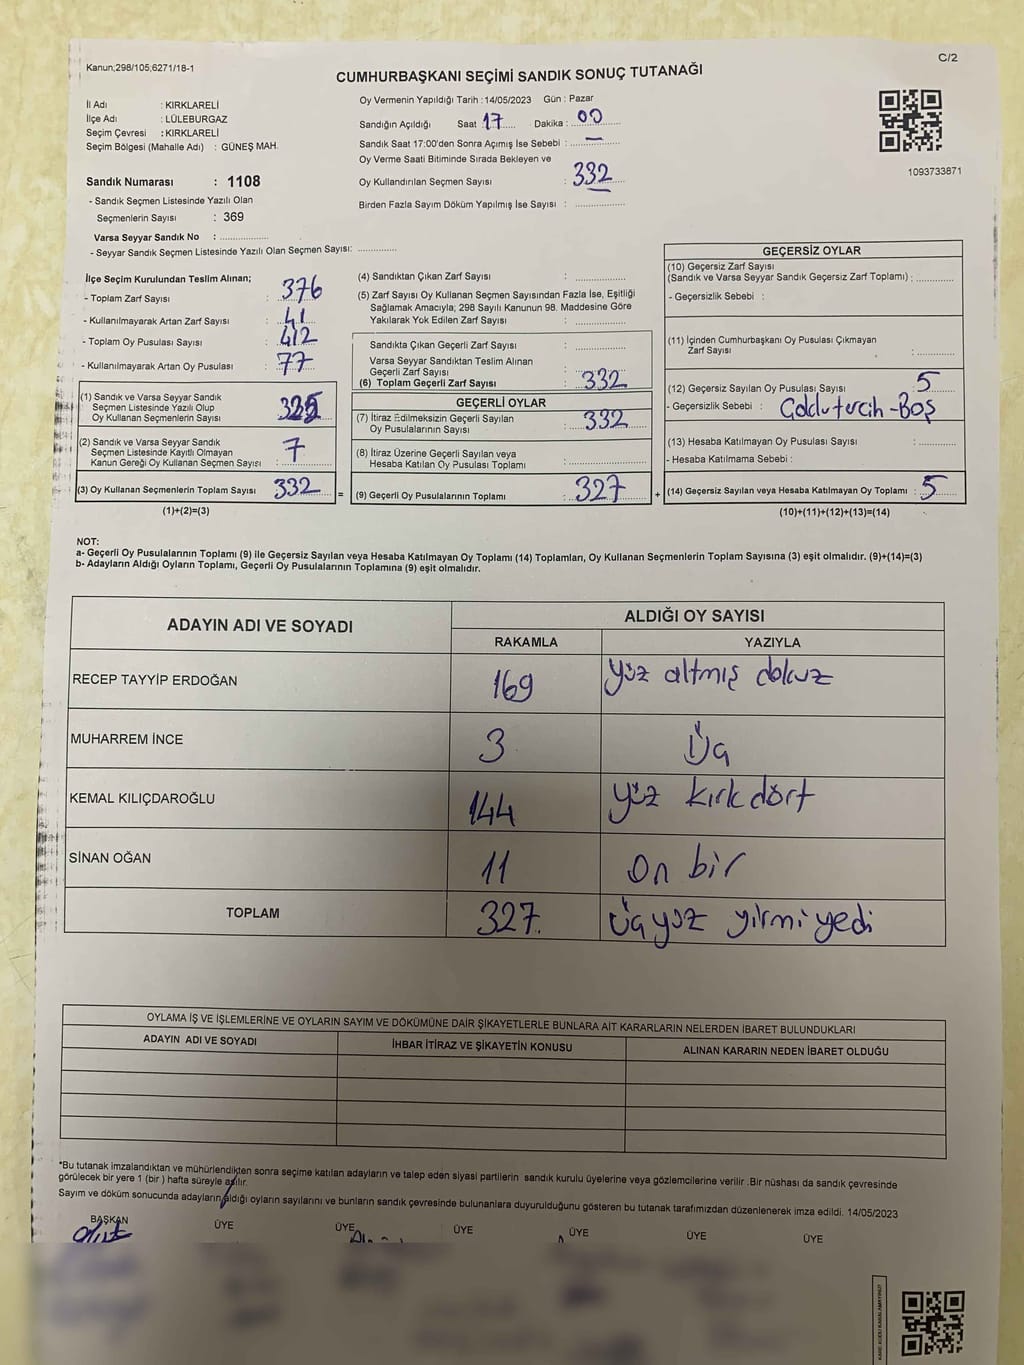 Kanun;298/105;6271/18-1
C/2
CUMHURBAŞKANI SEÇİMİ SANDIK SONUÇ TUTANAĞI
İl Adı : KIRKLARELİ
İlçe Adı : LÜLEBURGAZ
Seçim Çevresi : KIRKLARELİ
Seçim Bölgesi (Mahalle Adı) : GÜNEŞ MAH.
Sandık Numarası : 1108
- Sandık Seçmen Listesinde Yazılı Olan
Seçmenlerin Sayısı : 369
Varsa Seyyar Sandık No :
- Seyyar Sandık Seçmen Listesinde Yazılı Olan Seçmen Sayısı:
Oy Vermenin Yapıldığı Tarih : 14/05/2023 Gün : Pazar
Sandığın Açıldığı Saat 17 Dakika : 00
Sandık Saat 17:00'den Sonra Açımış İse Sebebi : —
Oy Verme Saati Bitiminde Sırada Bekleyen ve
Oy Kullandırılan Seçmen Sayısı : 332
Birden Fazla Sayım Döküm Yapılmış İse Sayısı :
1093733871
İlçe Seçim Kurulundan Teslim Alınan;
- Toplam Zarf Sayısı : 376
- Kullanılmayarak Artan Zarf Sayısı : 41
- Toplam Oy Pusulası Sayısı : 412
- Kullanılmayarak Artan Oy Pusulası : 77
(1) Sandık ve Varsa Seyyar Sandık
Seçmen Listesinde Yazılı Olup
Oy Kullanan Seçmenlerin Sayısı : 325
(2) Sandık ve Varsa Seyyar Sandık
Seçmen Listesinde Kayıtlı Olmayan
Kanun Gereği Oy Kullanan Seçmen Sayısı : 7
(3) Oy Kullanan Seçmenlerin Toplam Sayısı : 332 =
(1)+(2)=(3)
(4) Sandıktan Çıkan Zarf Sayısı :
(5) Zarf Sayısı Oy Kullanan Seçmen Sayısından Fazla İse, Eşitliği
Sağlamak Amacıyla; 298 Sayılı Kanunun 98. Maddesine Göre
Yakılarak Yok Edilen Zarf Sayısı :
Sandıkta Çıkan Geçerli Zarf Sayısı :
Varsa Seyyar Sandıktan Teslim Alınan
Geçerli Zarf Sayısı :
(6) Toplam Geçerli Zarf Sayısı : 332
GEÇERLİ OYLAR
(7) İtiraz Edilmeksizin Geçerli Sayılan
Oy Pusulalarının Sayısı : 332
(8) İtiraz Üzerine Geçerli Sayılan veya
Hesaba Katılan Oy Pusulası Toplamı :
(9) Geçerli Oy Pusulalarının Toplamı : 327 +
GEÇERSİZ OYLAR
(10) Geçersiz Zarf Sayısı
(Sandık ve Varsa Seyyar Sandık Geçersiz Zarf Toplamı) :
- Geçersizlik Sebebi :
(11) İçinden Cumhurbaşkanı Oy Pusulası Çıkmayan
Zarf Sayısı :
(12) Geçersiz Sayılan Oy Pusulası Sayısı : 5
- Geçersizlik Sebebi : -Boş
(13) Hesaba Katılmayan Oy Pusulası Sayısı :
- Hesaba Katılmama Sebebi :
(14) Geçersiz Sayılan veya Hesaba Katılmayan Oy Toplamı : 5
(10)+(11)+(12)+(13)=(14)
NOT:
a- Geçerli Oy Pusulalarının Toplamı (9) ile Geçersiz Sayılan veya Hesaba Katılmayan Oy Toplamı (14) Toplamları, Oy Kullanan Seçmenlerin Toplam Sayısına (3) eşit olmalıdır. (9)+(14)=(3)
b- Adayların Aldığı Oyların Toplamı, Geçerli Oy Pusulalarının Toplamına (9) eşit olmalıdır.
ADAYIN ADI VE SOYADI
ALDIĞI OY SAYISI
RAKAMLA YAZIYLA
RECEP TAYYİP ERDOĞAN 169 yüz altmış dokuz
MUHARREM İNCE 3 Üç
KEMAL KILIÇDAROĞLU 144 yüz kırk dört
SİNAN OĞAN 11 On bir
TOPLAM 327. Üçyüz yirmi yedi
OYLAMA İŞ VE İŞLEMLERİNE VE OYLARIN SAYIM VE DÖKÜMÜNE DAİR ŞİKAYETLERLE BUNLARA AİT KARARLARIN NELERDEN İBARET BULUNDUKLARI
ADAYIN ADI VE SOYADI İHBAR İTİRAZ VE ŞİKAYETİN KONUSU ALINAN KARARIN NEDEN İBARET OLDUĞU
*Bu tutanak imzalandıktan ve mühürlendikten sonra seçime katılan adayların ve talep eden siyasi partilerin sandık kurulu üyelerine veya gözlemcilerine verilir .Bir nüshası da sandık çevresinde
görülecek bir yere 1 (bir ) hafta süreyle asılır.
Sayım ve döküm sonucunda adayların aldığı oyların sayılarını ve bunların sandık çevresinde bulunanlara duyurulduğunu gösteren bu tutanak tarafımızdan düzenlenerek imza edildi. 14/05/2023
BAŞKAN ÜYE ÜYE ÜYE ÜYE ÜYE ÜYE